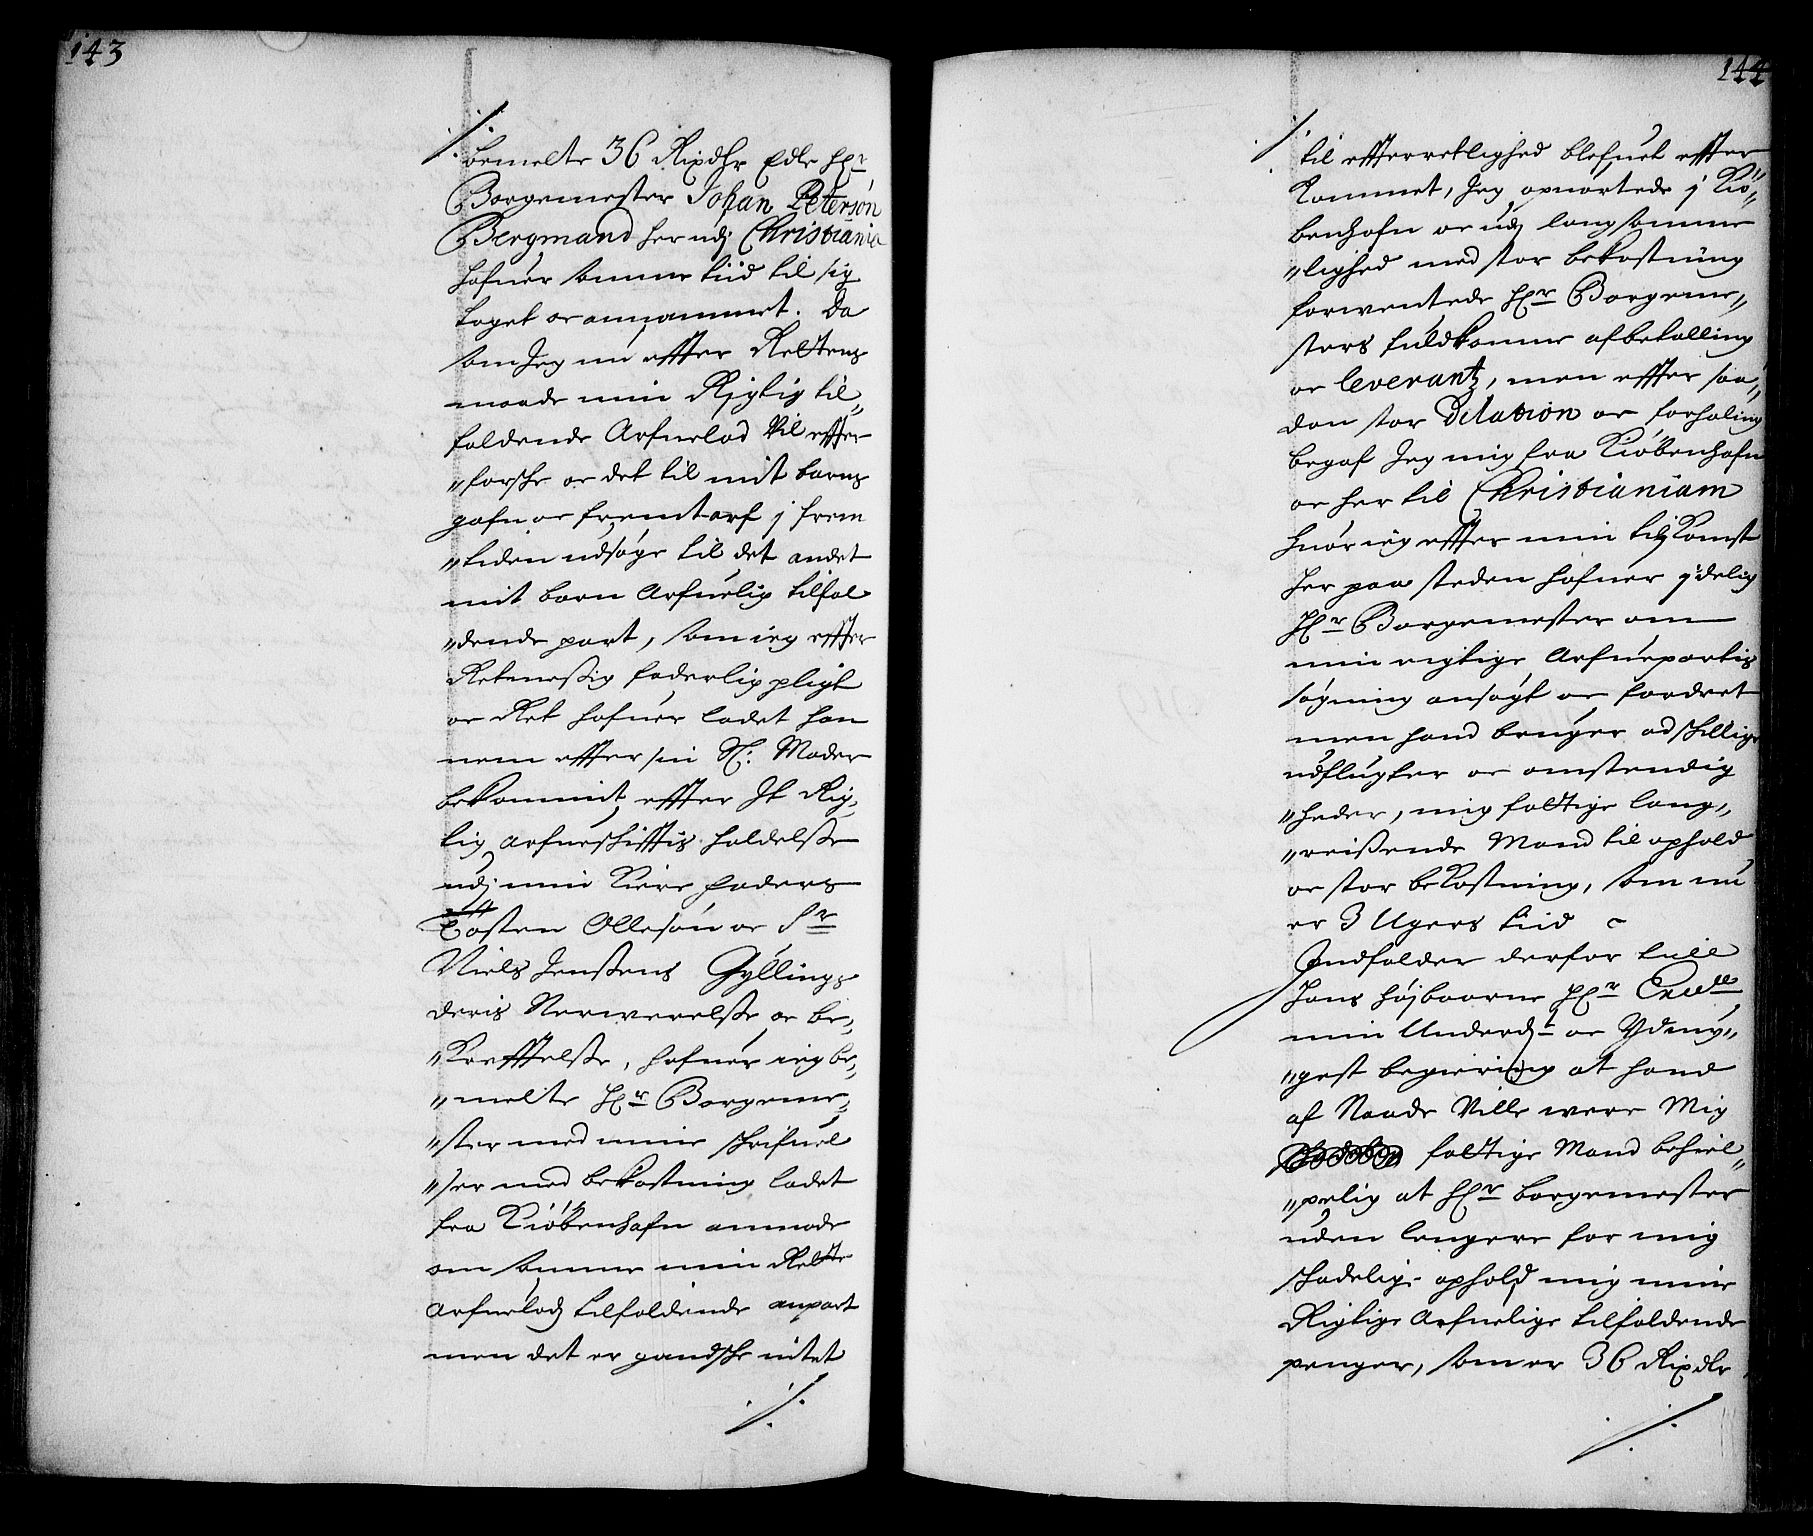 143
./.
bemelte 36 Rixdlr Edle Hr
Borgemester Johan Peterson
Bergmand her udj Christiania
hafuer samme tiid til sig
taget oc annammet. Da
som Jeg nu effter Rettens
maade min Rigtig til„
faldende Arfuelod vil effter
„forsche oc det til mit barns
gafn oc fremtarf j frem
„tiden udsøge til det andet
mit barn Arfuelig tilfal
„dende part, som ieg effter
Retmessig faderlig pligt
oc Ret hafuer ladet han
nem effter sin Sl: Moder
bekommit, effter It Rig„
tig Arfueschifftis holdelsse
udj min Kiere faders
Tosten Ollesøn oc Sr
Niels Jenssens Gyllings
deris Nerwerelsse oc be„
„Krefftelsse, hafuer ieg be„
„melte Hr Borgeme„
„ster med mine schrifuel
„ser med bekostning ladet
fra Kiøbenhafn anmode
om samme min Rette
Arfuelod tilfaldende anpart
men det er gandsche intet
./.
144
./.
til effterretlighed blefuet effter
Kommet, Jeg opuartede j Kiø„
benhafn oc udj langsomme
„lighed med stor bekostning
forwentede Hr Borgeme„
sters fuldkomne afbetalling
oc leverantz, men effter saa„
dan stor Dilation oc forhaling
begaf Jeg mig fra Kiøbenhafn
oc her til Christianiam
huor ieg effter min tilkomst
her paa steden hafuer jdelig
Hr Borgemester om
min rigtige Arfuepartis
søgning ansøgt oc fordret
men hand bruger adschillige
udflugter oc omstendig
„heder, mig fattige lang„
„reissende Mand til ophold
oc stor bekostning, som nu
er 3 Ugers tiid
Indfalder derfor till
Hans Højbaarne Hr Excelle
min Underd: oc Ydmy„
„gest begiering at hand
af Naade Ville were Mig
fattige Mand behiel„
„pelig at Hr borgemester
uden lengere for mig
schadelig ophold mig mine
Rigtige Arfuelige tilfaldende
penger, som er 36 Rixdlr
./.